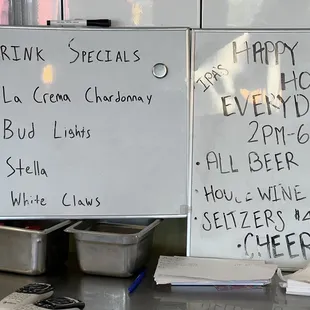 RINK SPECIALS
La Crema Chardonnay
Bud Lights
Stella
White Claws
HAPPY
IPA's HO
EVERYD
2PM-6
• ALL BEER
• HOUSE WINE
• SELTZERS $4
• CHEER